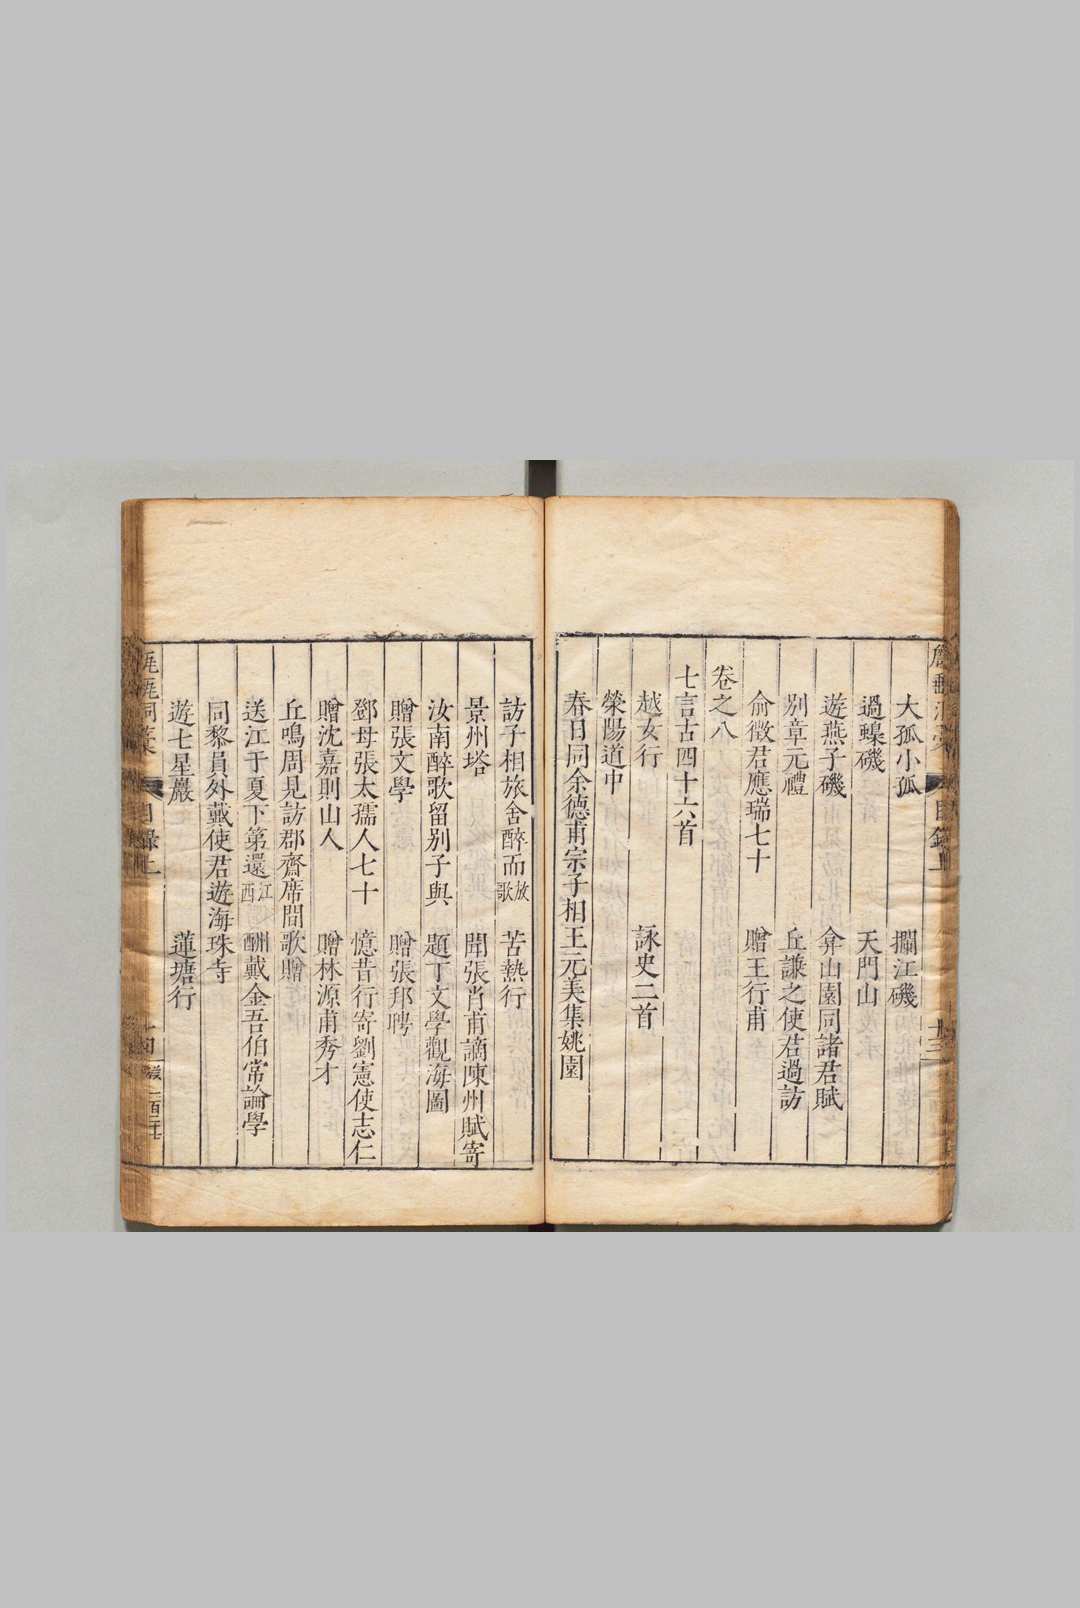 大孤小孤　攔江磯
過蟂磯　天門山
遊燕子磯　弇山園同諸君賦
別章元禮　丘謙之使君過訪
俞徵君應瑞七十　贈王行甫
卷之八
七言古四十六首
越女行　詠史二首
滎陽道中
春日同余德甫宗子相王元美集姚園
訪子相旅舍醉而放歌　苦熱行
景州塔　聞張肖甫謫陳州賦寄
汝南醉歌留别子與　題丁文學觀海圖
贈張文學　贈張邦聘
鄧母張太孺人七十　憶昔行寄劉憲使志仁
贈沈嘉則山人　贈林源甫秀才
丘鳴周見訪郡齋席間歌贈
送江于夏下第還江西　酬戴金吾伯常論學
同黎員外戴使君遊海珠寺
遊七星巖　蓮塘行
甔甀洞藁　目錄上　十四